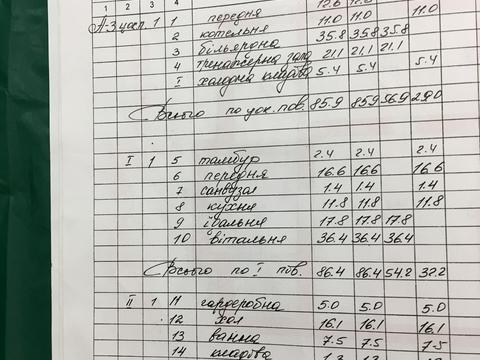 1 2 3 4
12.6 12.6 12.6
А-3 цок. 1 1 передня 11.0 11.0 11.0
2 котельня 35.8 35.8 35.8
3 більярдна 21.1 21.1 21.1
4 тренажерна зала
I холодна кладова 5.4 5.4 5.4
Всього по цок. пов. 85.9 85.9 56.9 29.0
I 1 5 тамбур 2.4 2.4 2.4
6 передня 16.6 16.6 16.6
7 санвузол 1.4 1.4 1.4
8 кухня 11.8 11.8 11.8
9 їдальня 17.8 17.8 17.8
10 вітальня 36.4 36.4 36.4
Всього по I пов. 86.4 86.4 54.2 32.2
II 1 11 гардеробна 5.0 5.0 5.0
12 хол 16.1 16.1 16.1
13 ванна 7.5 7.5 7.5
14 кладова